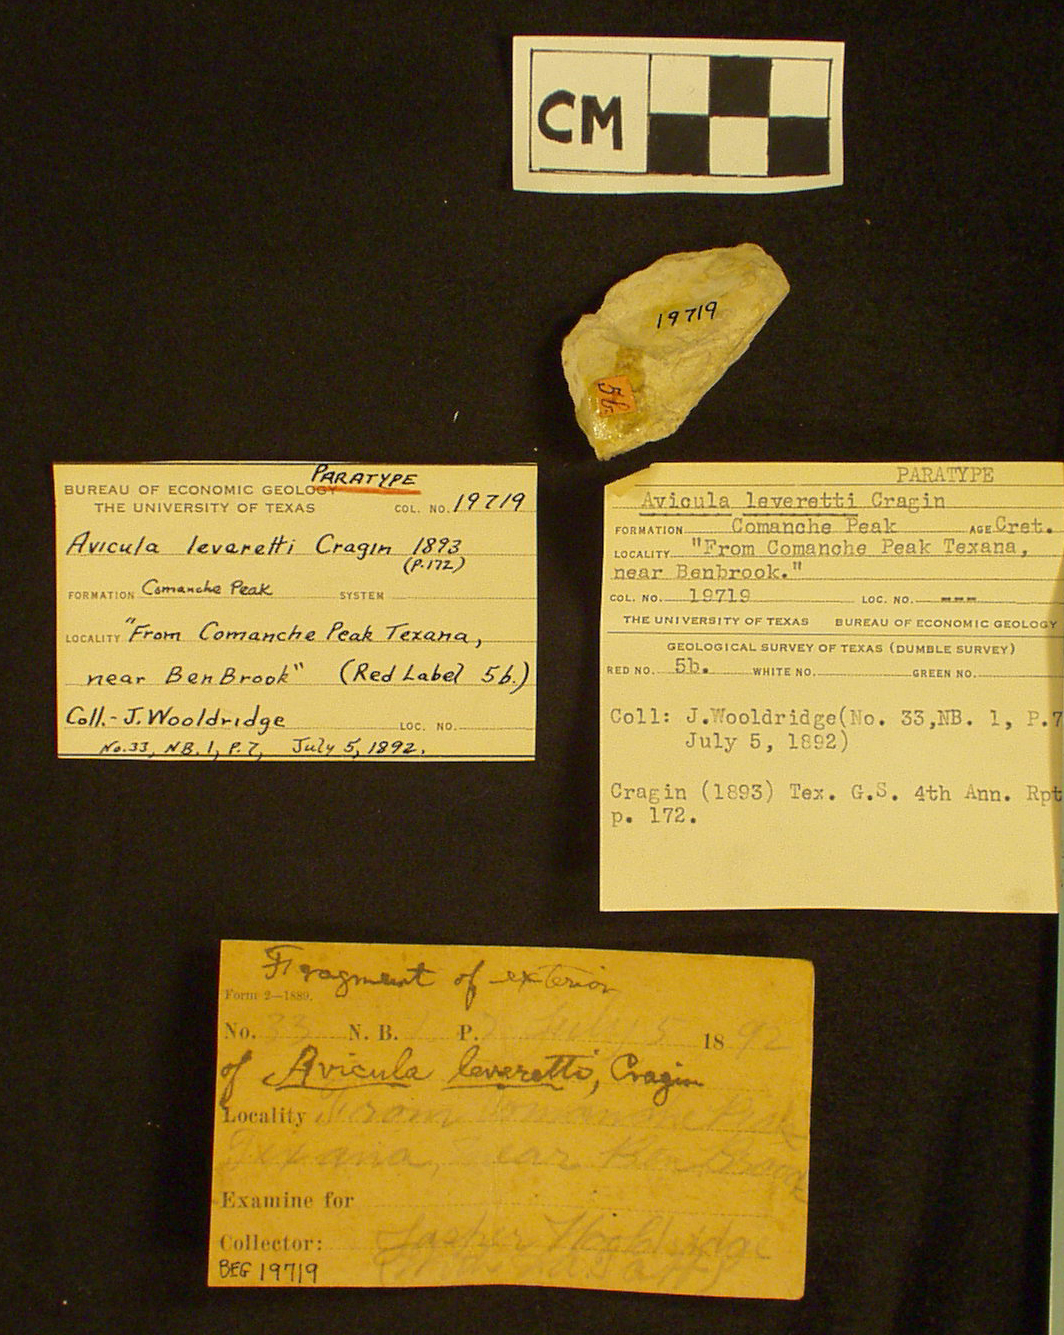 CM
19719
5b.
PARATYPE
BUREAU OF ECONOMIC GEOLOGY
THE UNIVERSITY OF TEXAS COL. NO. 19719
Avicula levaretti Cragin 1893
(P.172)
FORMATION Comanche Peak SYSTEM
LOCALITY "From Comanche Peak Texana,
near BenBrook" (Red Label 5b.)
Coll.- J. Wooldridge LOC. NO.
No.33, NB.1, P.7, July 5, 1892.
PARATYPE
Avicula leveretti Cragin
FORMATION Comanche Peak AGE Cret.
LOCALITY "From Comanche Peak Texana,
near Benbrook."
COL. NO. 19719 LOC. NO. ---
THE UNIVERSITY OF TEXAS BUREAU OF ECONOMIC GEOLOGY
GEOLOGICAL SURVEY OF TEXAS (DUMBLE SURVEY)
RED NO. 5b. WHITE NO. GREEN NO.
Coll: J.Wooldridge(No. 33,NB. 1, P.7
July 5, 1892)
Cragin (1893) Tex. G.S. 4th Ann. Rpt
p. 172.
Fragment of exterior
Form 2—1889.
No. 33 N. B. 1 P. 7 July 5 1892
of Avicula leveretti, Cragin
Locality From Comanche Peak
Texana, near Ben Brook
Examine for
Collector:
BEG 19719